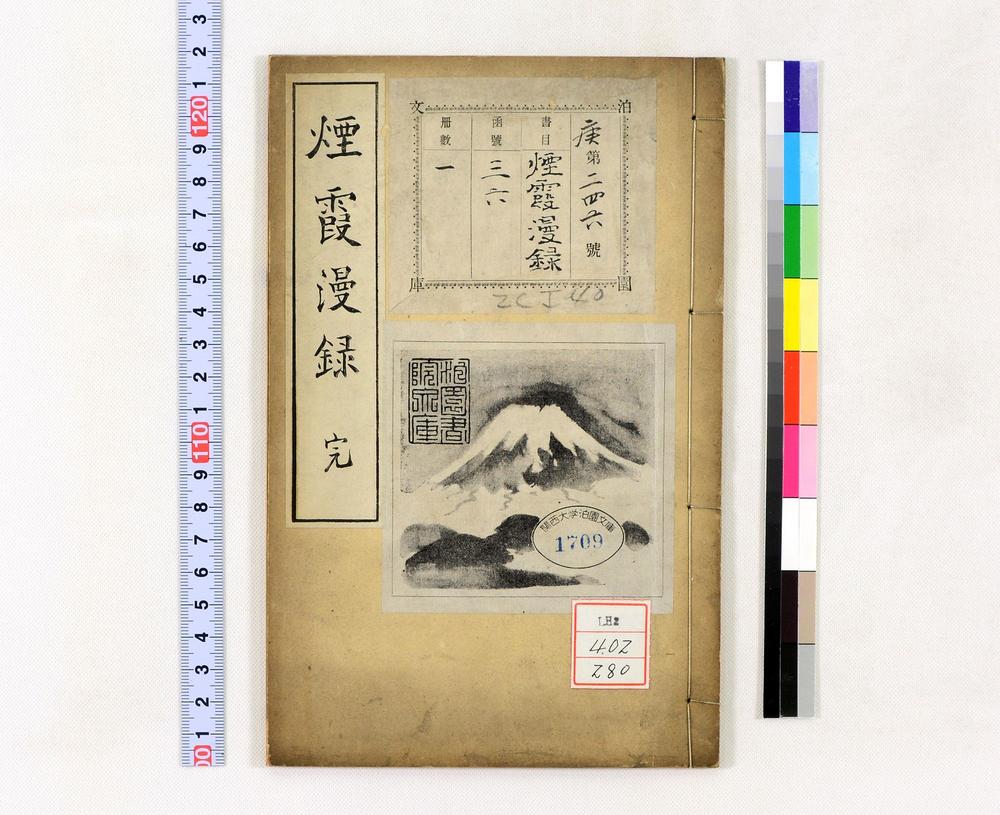 煙霞漫録 完
泊園文庫
庚第二四六號
書目 煙霞漫録
函號 三六
冊數 一
泊園書
院文庫
関西大学泊園文庫
1709
LH2
4.02
280
3
2
1
120
9
8
7
6
5
4
3
2
1
110
9
8
7
6
5
4
3
2
1